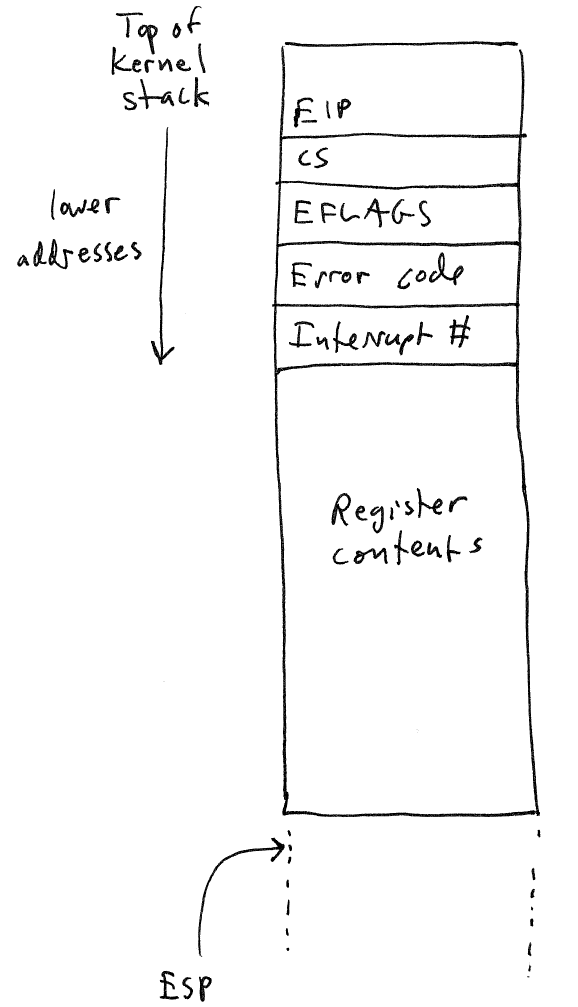 Top of
kernel
stack
lower
addresses
EIP
CS
EFLAGS
Error code
Interrupt #
Register
contents
ESP